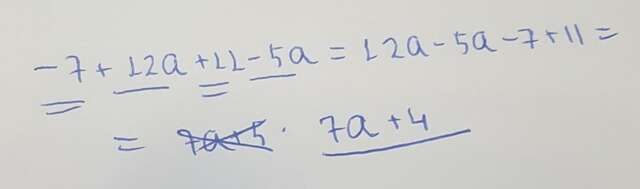 -7 + 12a + 11 - 5a = 12a - 5a - 7 + 11 =
= 7a+5 . 7a + 4